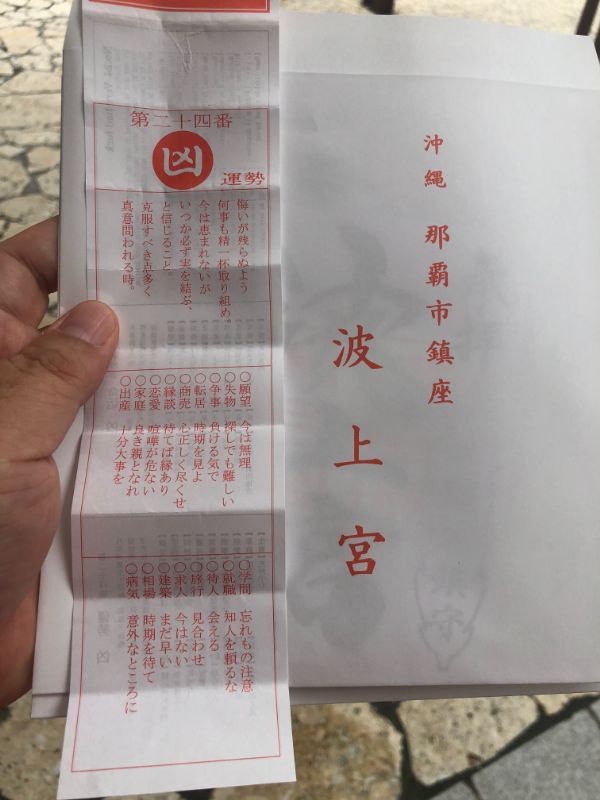 第二十四番
凶
運勢
悔いが残らぬよう
何事も精一杯取り組め。
今は恵まれないが
いつか必ず実を結ぶ、
と信じること。
克服すべき点多く
真意問われる時。
○願望 今は無理
○失物 探しても難しい
○争事 負ける気で
○転居 時期を見よ
○商売 心正しく尽くせ
○縁談 待てば縁あり
○恋愛 喧嘩が危ない
○家庭 良き親となれ
○出産 十分大事を
○学問 忘れもの注意
○就職 知人を頼るな
○待人 会える
○旅行 見合わせ
○求人 今はない
○建築 まだ早い
○相場 時期を待て
○病気 意外なところに
沖縄 那覇市鎮座
波上宮